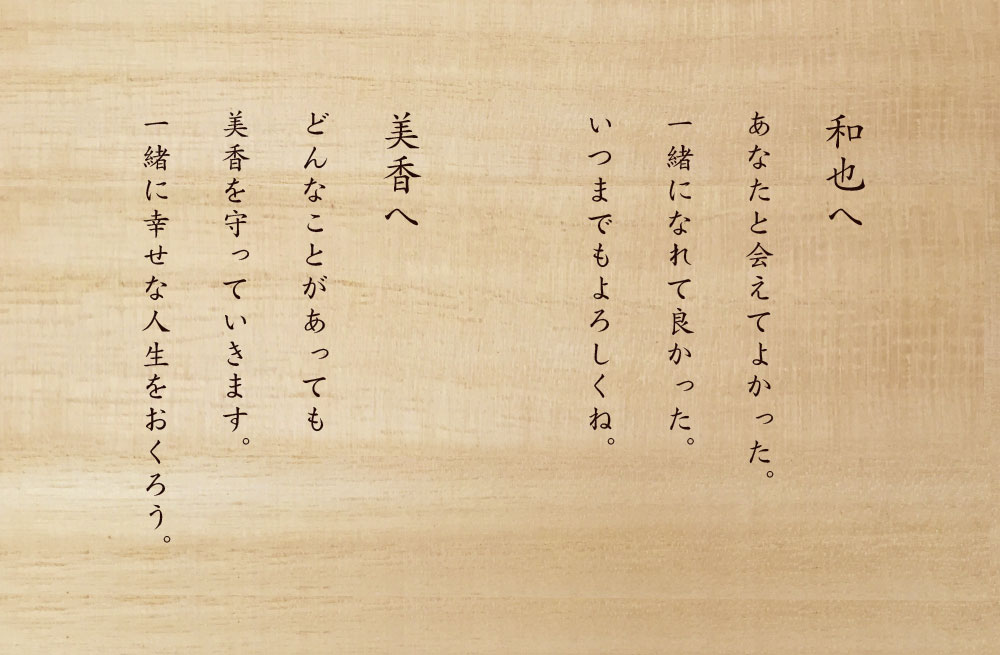 和也へ
あなたと会えてよかった。
一緒になれて良かった。
いつまでもよろしくね。
美香へ
どんなことがあっても
美香を守っていきます。
一緒に幸せな人生をおくろう。